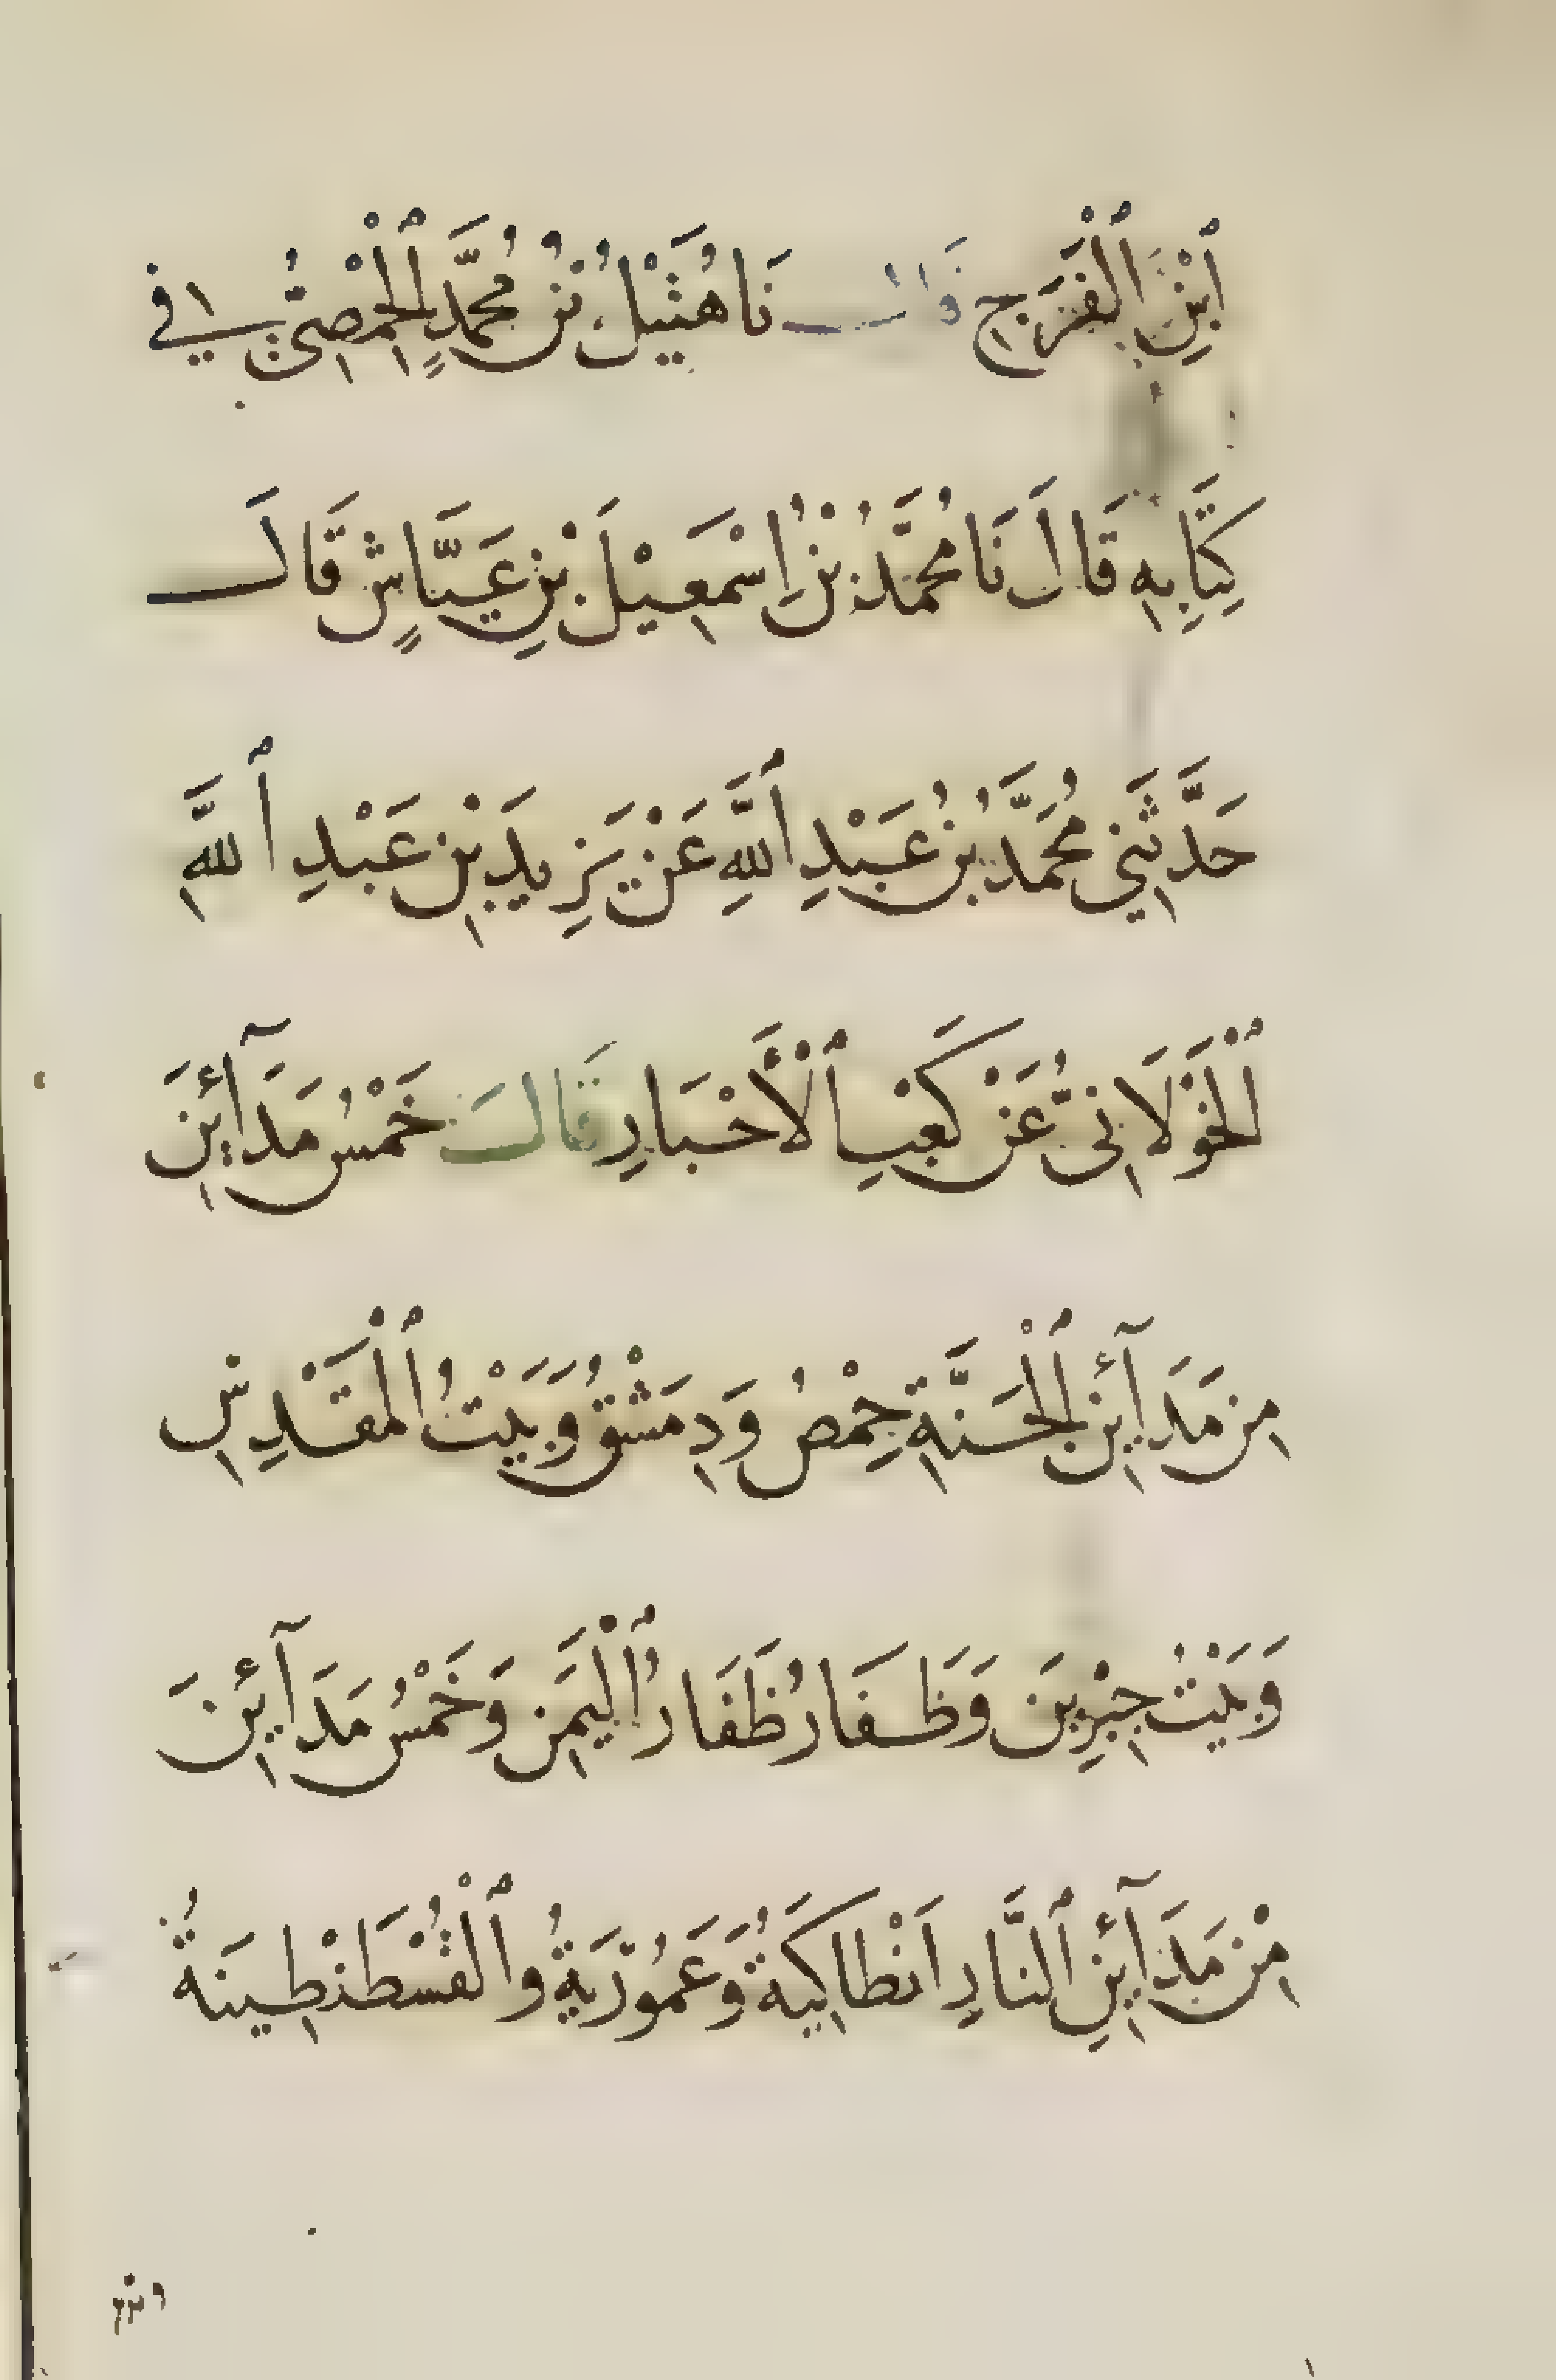 ٱبْنِ ٱلْفَرَجِ قَالَ نَا هُثَيْلُ بْنُ مُحَمَّدٍ ٱلْحِمْصِىُّ فِي
كِتَابِهِ قَالَ نَا مُحَمَّدُ بْنُ اِسْمَعِيْلَ بْنِ عَيَّاشٍ قَالَ
حَدَّثَنِي مُحَمَّدُ بْنُ عَبْدِ ٱللَّهِ عَنْ يَزِيدَ بْنِ عَبْدِ ٱللَّهِ
ٱلْخَوْلَانِىُّ عَنْ كَعْبِ ٱلْأَحْبَارِ قَالَ خَمْسُ مَدَآئِنَ
مِن مَدَآئِنِ ٱلْجَنَّةِ حِمْصُ وَدِمَشْقُ وَبَيْتُ ٱلْمَقْدِسِ
وَبَيْتُ جِبْرِينَ وَظَفَارُ ظَفَارُ ٱلْيَمَنِ وَخَمْسُ مَدَآئِنَ
مِنْ مَدَآئِنِ ٱلنَّارِ اَنْطَاكِيَةُ وَعَمُّورِيَةُ وَٱلْقُسْطَنْطِينَةُ